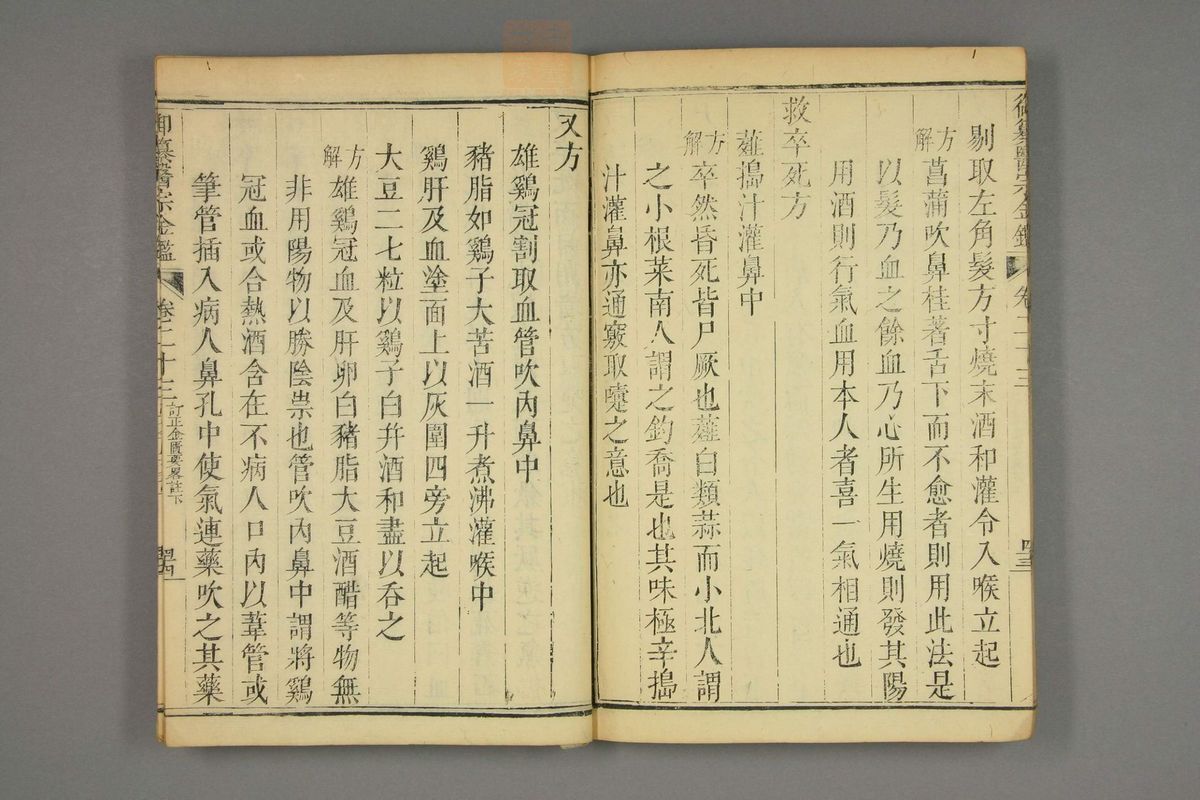 御纂醫宗金鑑 卷二十三 四三
剔取左角髮方寸燒末酒和灌令入喉立起
方解 菖蒲吹鼻桂著舌下而不愈者則用此法是
以髮乃血之餘血乃心所生用燒則發其陽
用酒則行氣血用本人者喜一氣相通也
救卒死方
薤搗汁灌鼻中
方解 卒然昏死皆尸厥也薤白類蒜而小北人謂
之小根菜南人謂之鈞喬是也其味極辛搗
汁灌鼻亦通竅取嚏之意也
又方
雄鷄冠割取血管吹內鼻中
豬脂如鷄子大苦酒一升煮沸灌喉中
鷄肝及血塗面上以灰圍四旁立起
大豆二七粒以鷄子白幷酒和盡以吞之
方解 雄鷄冠血及肝卵白豬脂大豆酒醋等物無
非用陽物以勝陰祟也管吹內鼻中謂將鷄
冠血或合熱酒含在不病人口內以葦管或
筆管插入病人鼻孔中使氣連藥吹之其藥
御纂醫宗金鑑 卷二十三 訂正金匱要畧註下